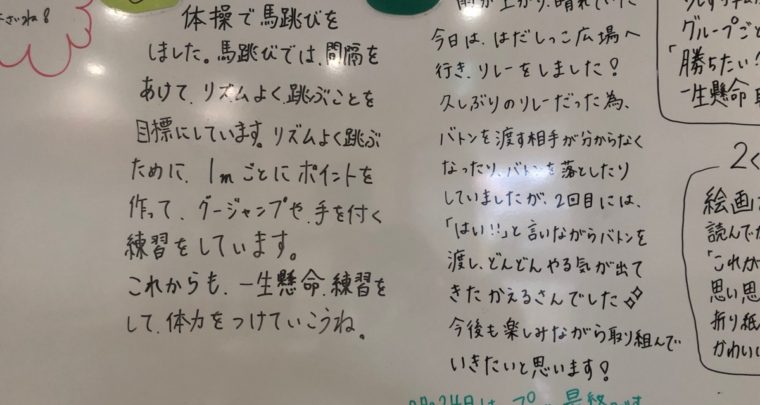 体操で馬跳びを
しました。馬跳びでは、間隔を
あけて、リズムよく跳ぶことを
目標にしています。リズムよく跳ぶ
ために、1mごとにポイントを
作って、グージャンプや、手を付く
練習をしています。
これからも、一生懸命、練習を
して、体力をつけていこうね。
今日は、はだしっこ広場へ
行き、リレーをしました!
久しぶりのリレーだった為、
バトンを渡す相手が分からなく
なったり、バトンを落としたり
していましたが、2回目には、
「はい!!」と言いながらバトンを
渡し、どんどんやる気が出て
きたかえるさんでした✧
今後も楽しみながら取り組んで
いきたいと思います!
グループご
「勝ちたい
一生懸命
絵画
読んで
「これが
思い思
折り紙
かわい